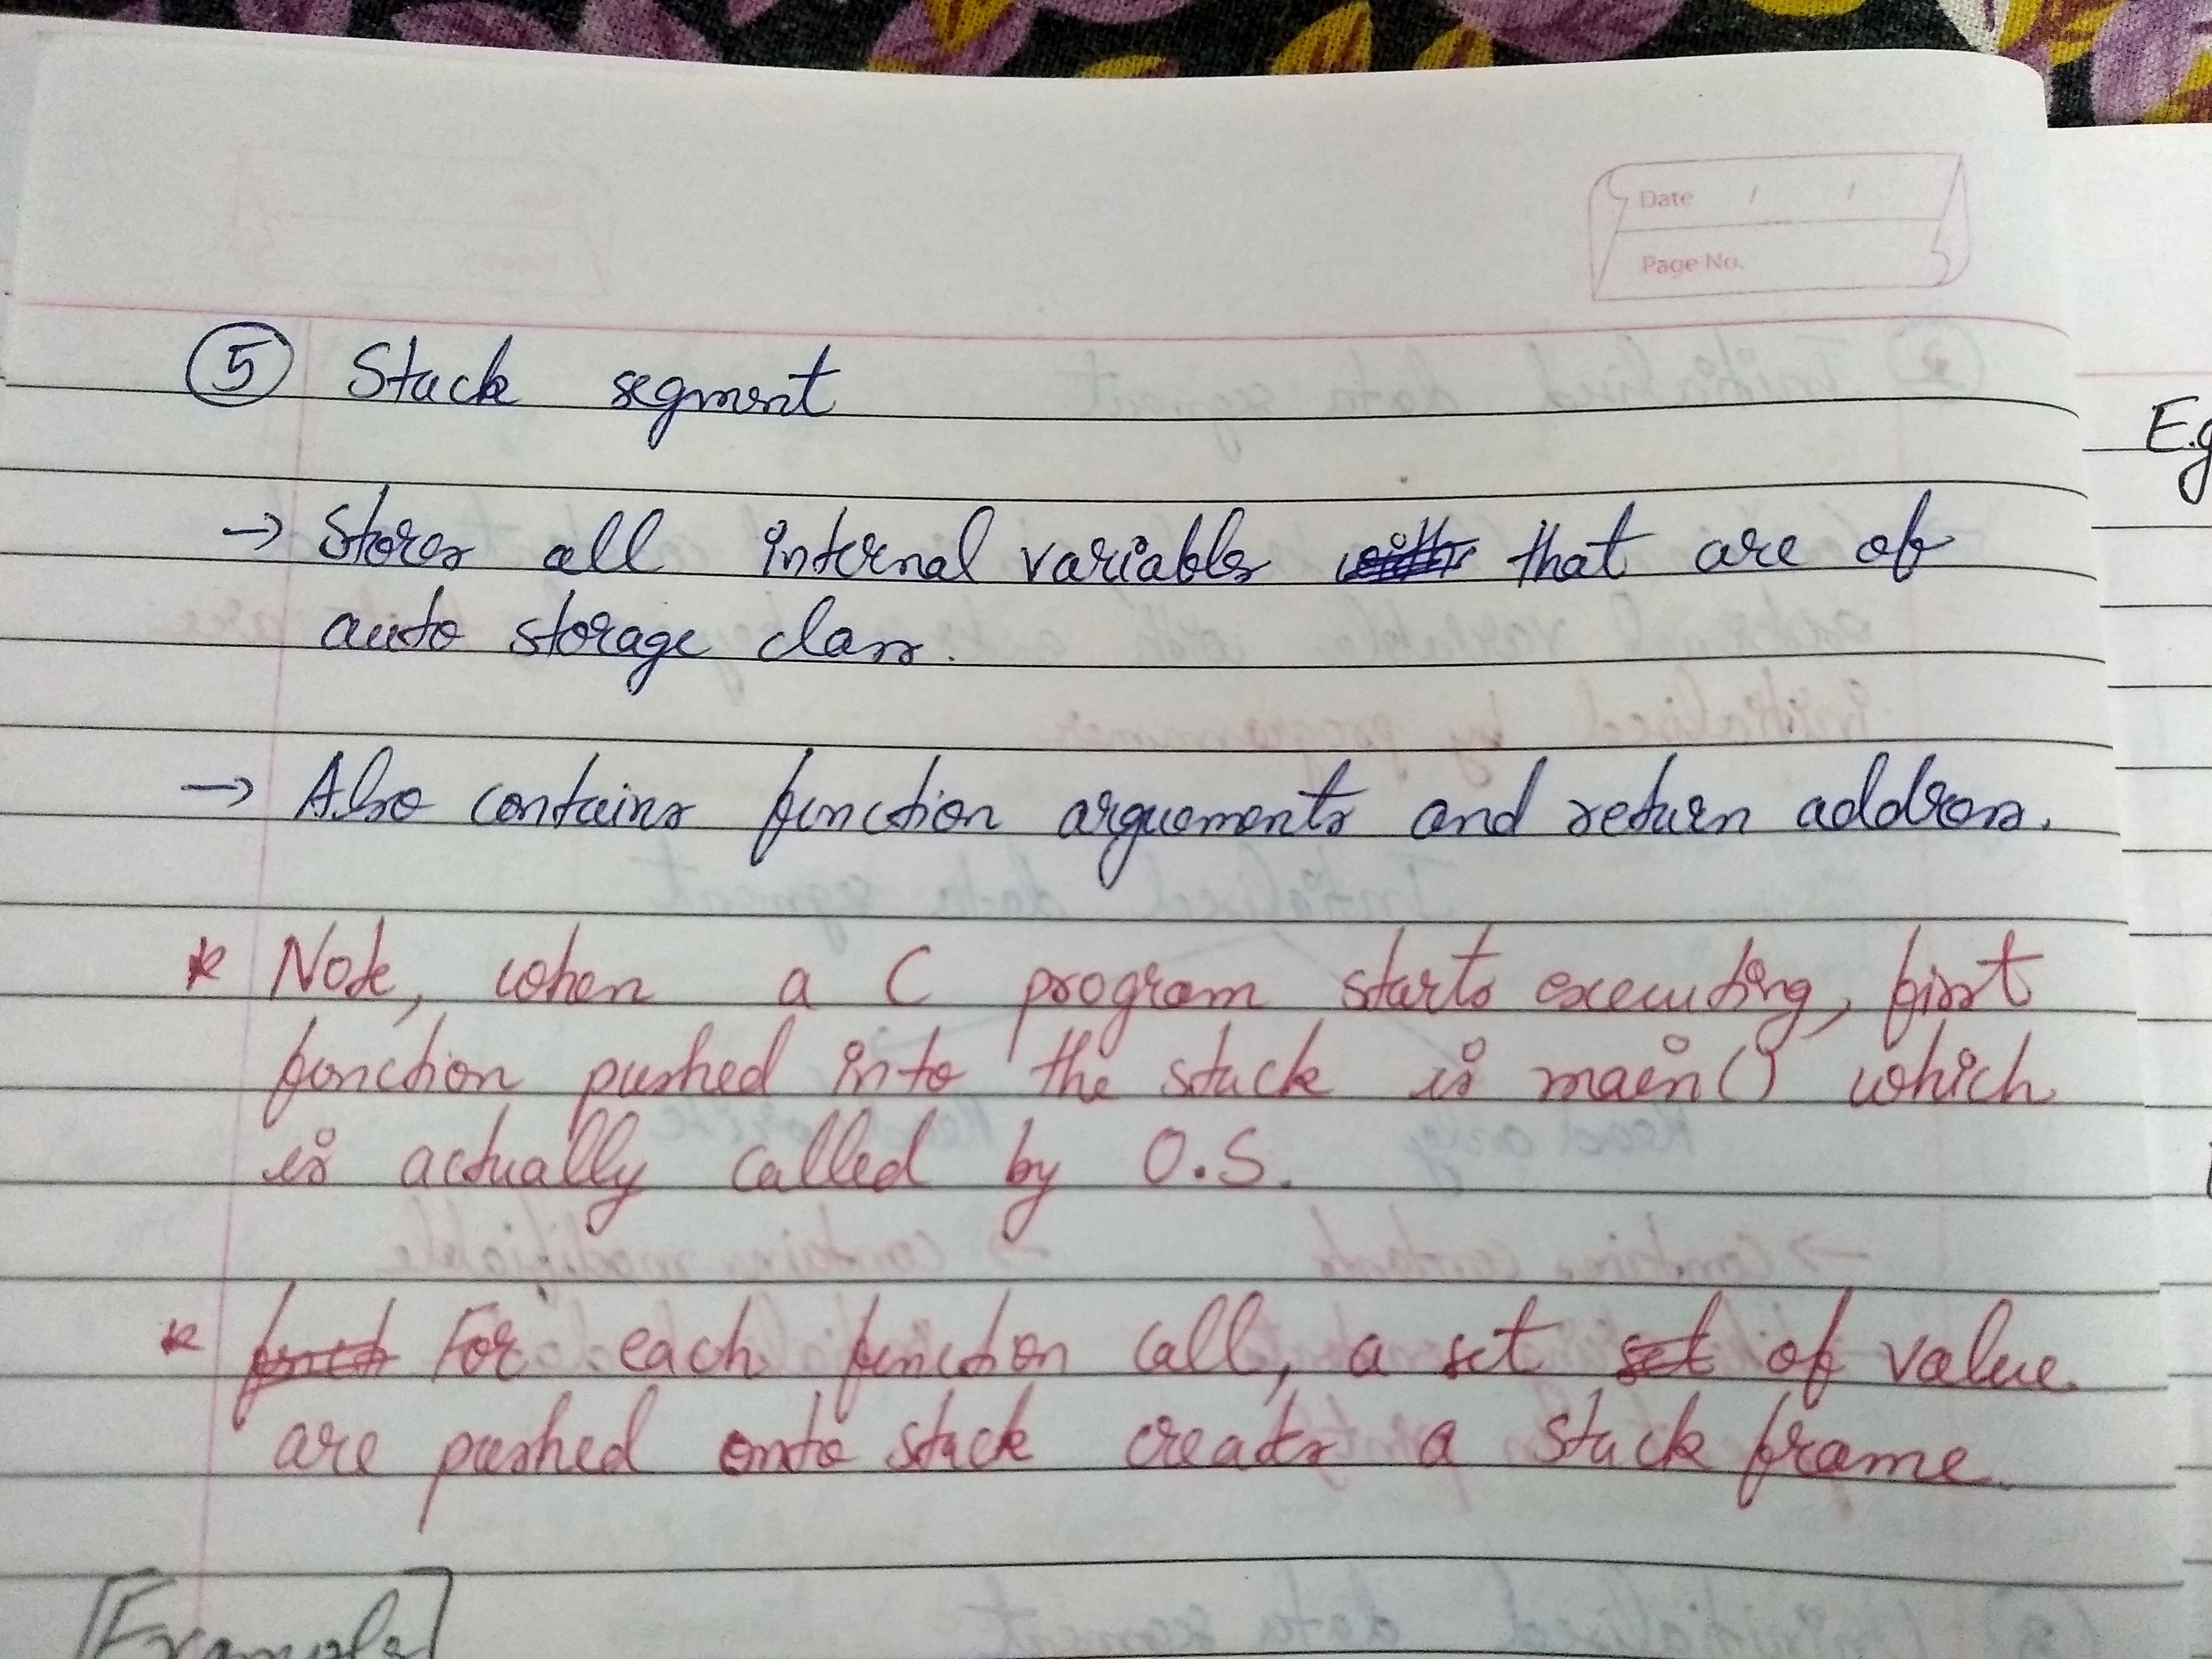 Date / /
Page No.
⑤ Stack segment
E.g
→ Stores all internal variables that are of
auto storage class.
→ Also contains function arguements and return address.
* Note, when a C program starts executing, first
function pushed into the stack is main() which
is actually called by O.S.
* For each function call, a set of value
are pushed onto stack creates a stack frame.
[Example]